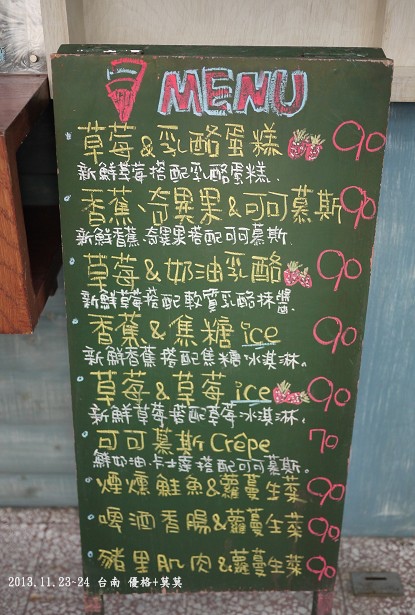 MENU
草莓&乳酪蛋糕 90
新鮮草莓搭配乳酪蛋糕.
香蕉、奇異果&可可慕斯 90
新鮮香蕉.奇異果搭配可可慕斯.
草莓&奶油乳酪 90
新鮮草莓搭配軟質乳酪抹醬.
香蕉&焦糖ice 90
新鮮香蕉搭配焦糖冰淇淋.
草莓&草莓ice 90
新鮮草莓搭配草莓冰淇淋.
可可慕斯Crêpe 70
鮮奶油.卡士達搭配可可慕斯.
煙燻鮭魚&蘿蔓生菜 90
啤酒香腸&蘿蔓生菜 90
豬里肌肉&蘿蔓生菜 90
2013.11.23~24 台南 優格+莫莫